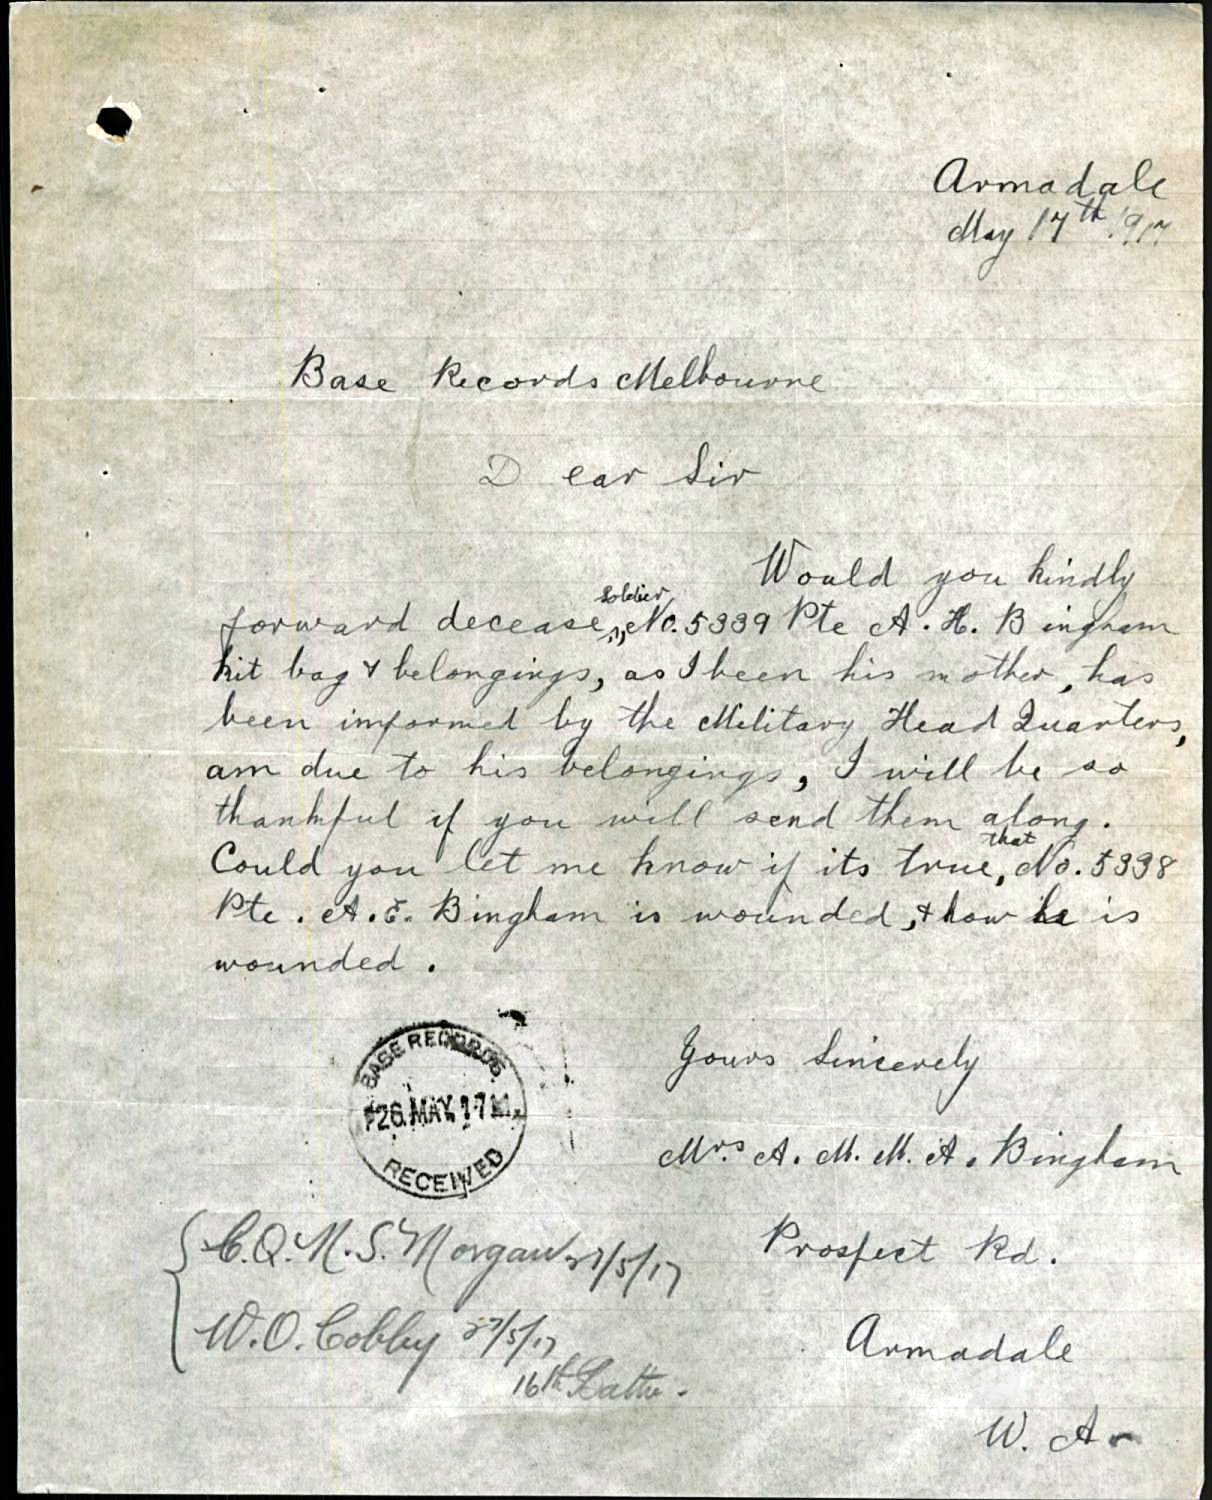 Armadale
May 17th 1917
Base Records Melbourne
Dear Sir
Would you kindly
soldier
forward decease, No. 5339 Pte A. H. Bingham
kit bag & belongings, as I been his mother, has
been informed by the Military Head Quarters,
am due to his belongings, I will be so
thankful if you will send them along.
that
Could you let me know if its true, No. 5338
Pte. A. E. Bingham is wounded, & how he is
wounded.
Yours Sincerely
BASE RECORDS
26 MAY 17
RECEIVED
Mrs A. M. M. A. Bingham
C.Q.M.S. Morgan 27/5/17
Prospect Rd.
W.O. Cobby 27/5/17
Armadale
16th
W. A